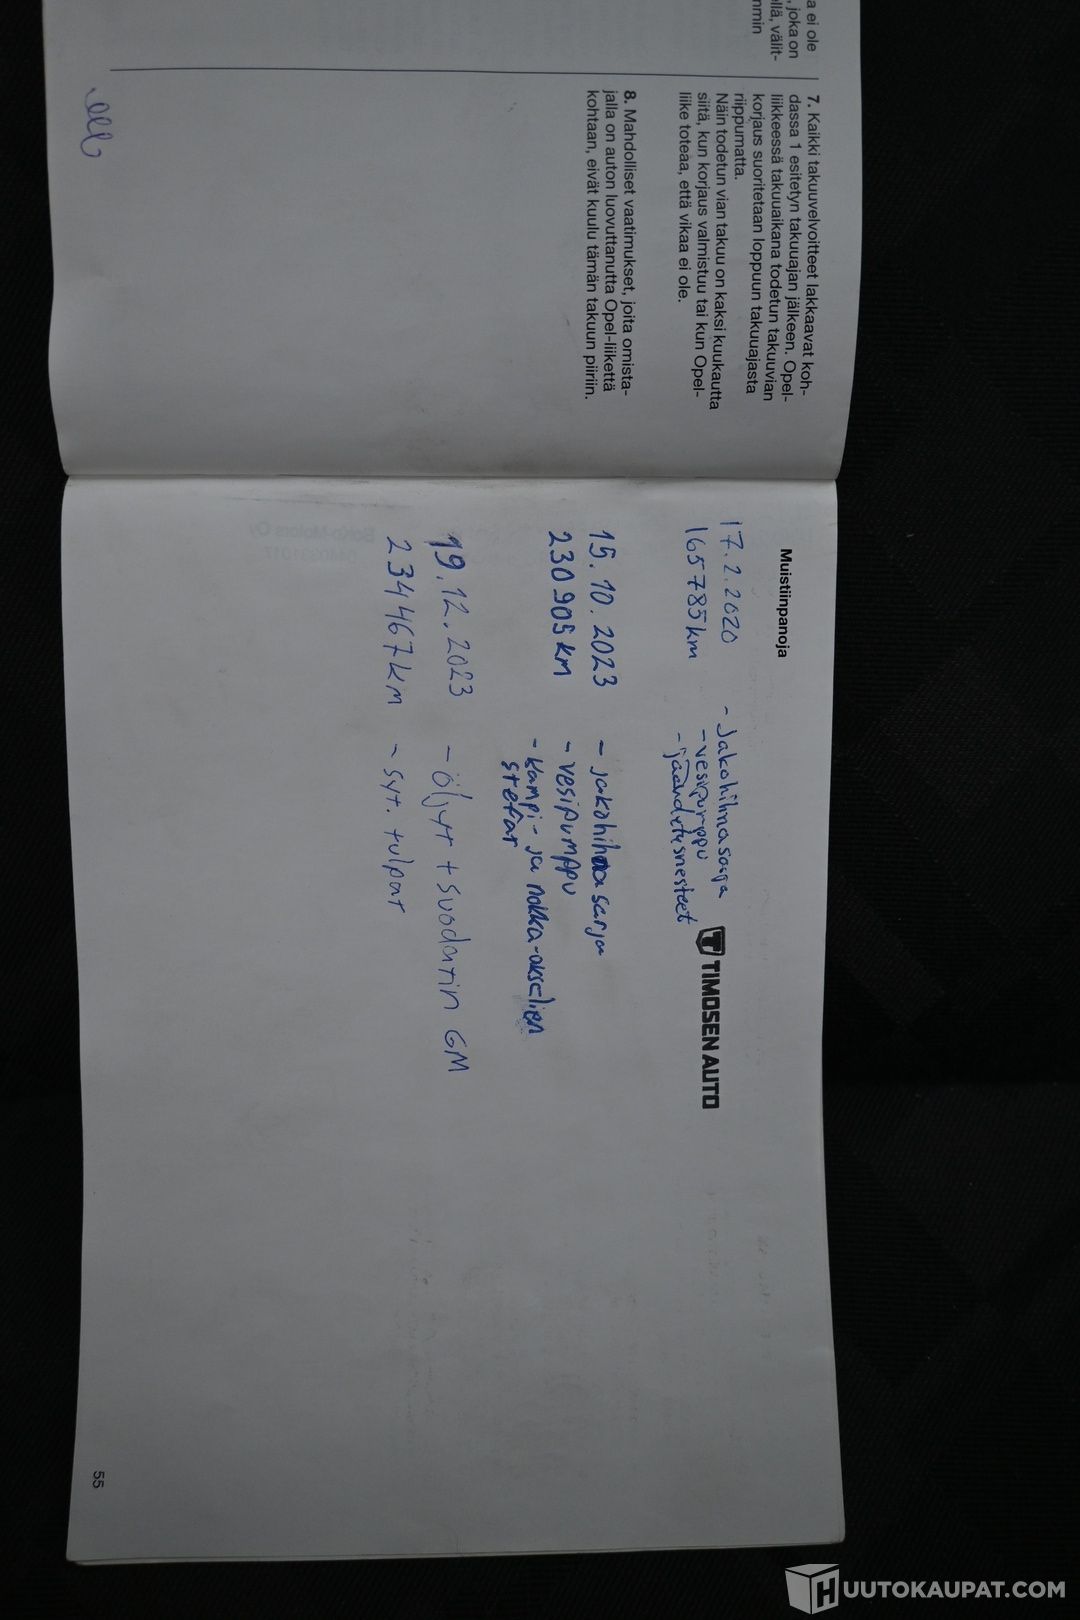 a ei ole
, joka on
ellä, välit-
mmin
7. Kaikki takuuvelvoitteet lakkaavat koh-
dassa 1 esitetyn takuuajan jälkeen. Opel-
liikkeessä takuuaikana todetun takuuvian
korjaus suoritetaan loppuun takuuajasta
riippumatta.
Näin todetun vian takuu on kaksi kuukautta
siitä, kun korjaus valmistuu tai kun Opel-
liike toteaa, että vikaa ei ole.
8. Mahdolliset vaatimukset, joita omista-
jalla on auton luovuttanutta Opel-liikettä
kohtaan, eivät kuulu tämän takuun piiriin.
Muistiinpanoja
17.2.2020 - Jakohihnasarja
165785km - vesipumppu
- jäähdytysnesteet
TIMOSEN AUTO
15.10.2023 - jakohihnasarja
230905km - vesipumppu
- kampi- ja nokka-akselien
stefat
19.12.2023 - öljyt + suodatin GM
234467km - syt. tulpat
55
HUUTOKAUPAT.COM